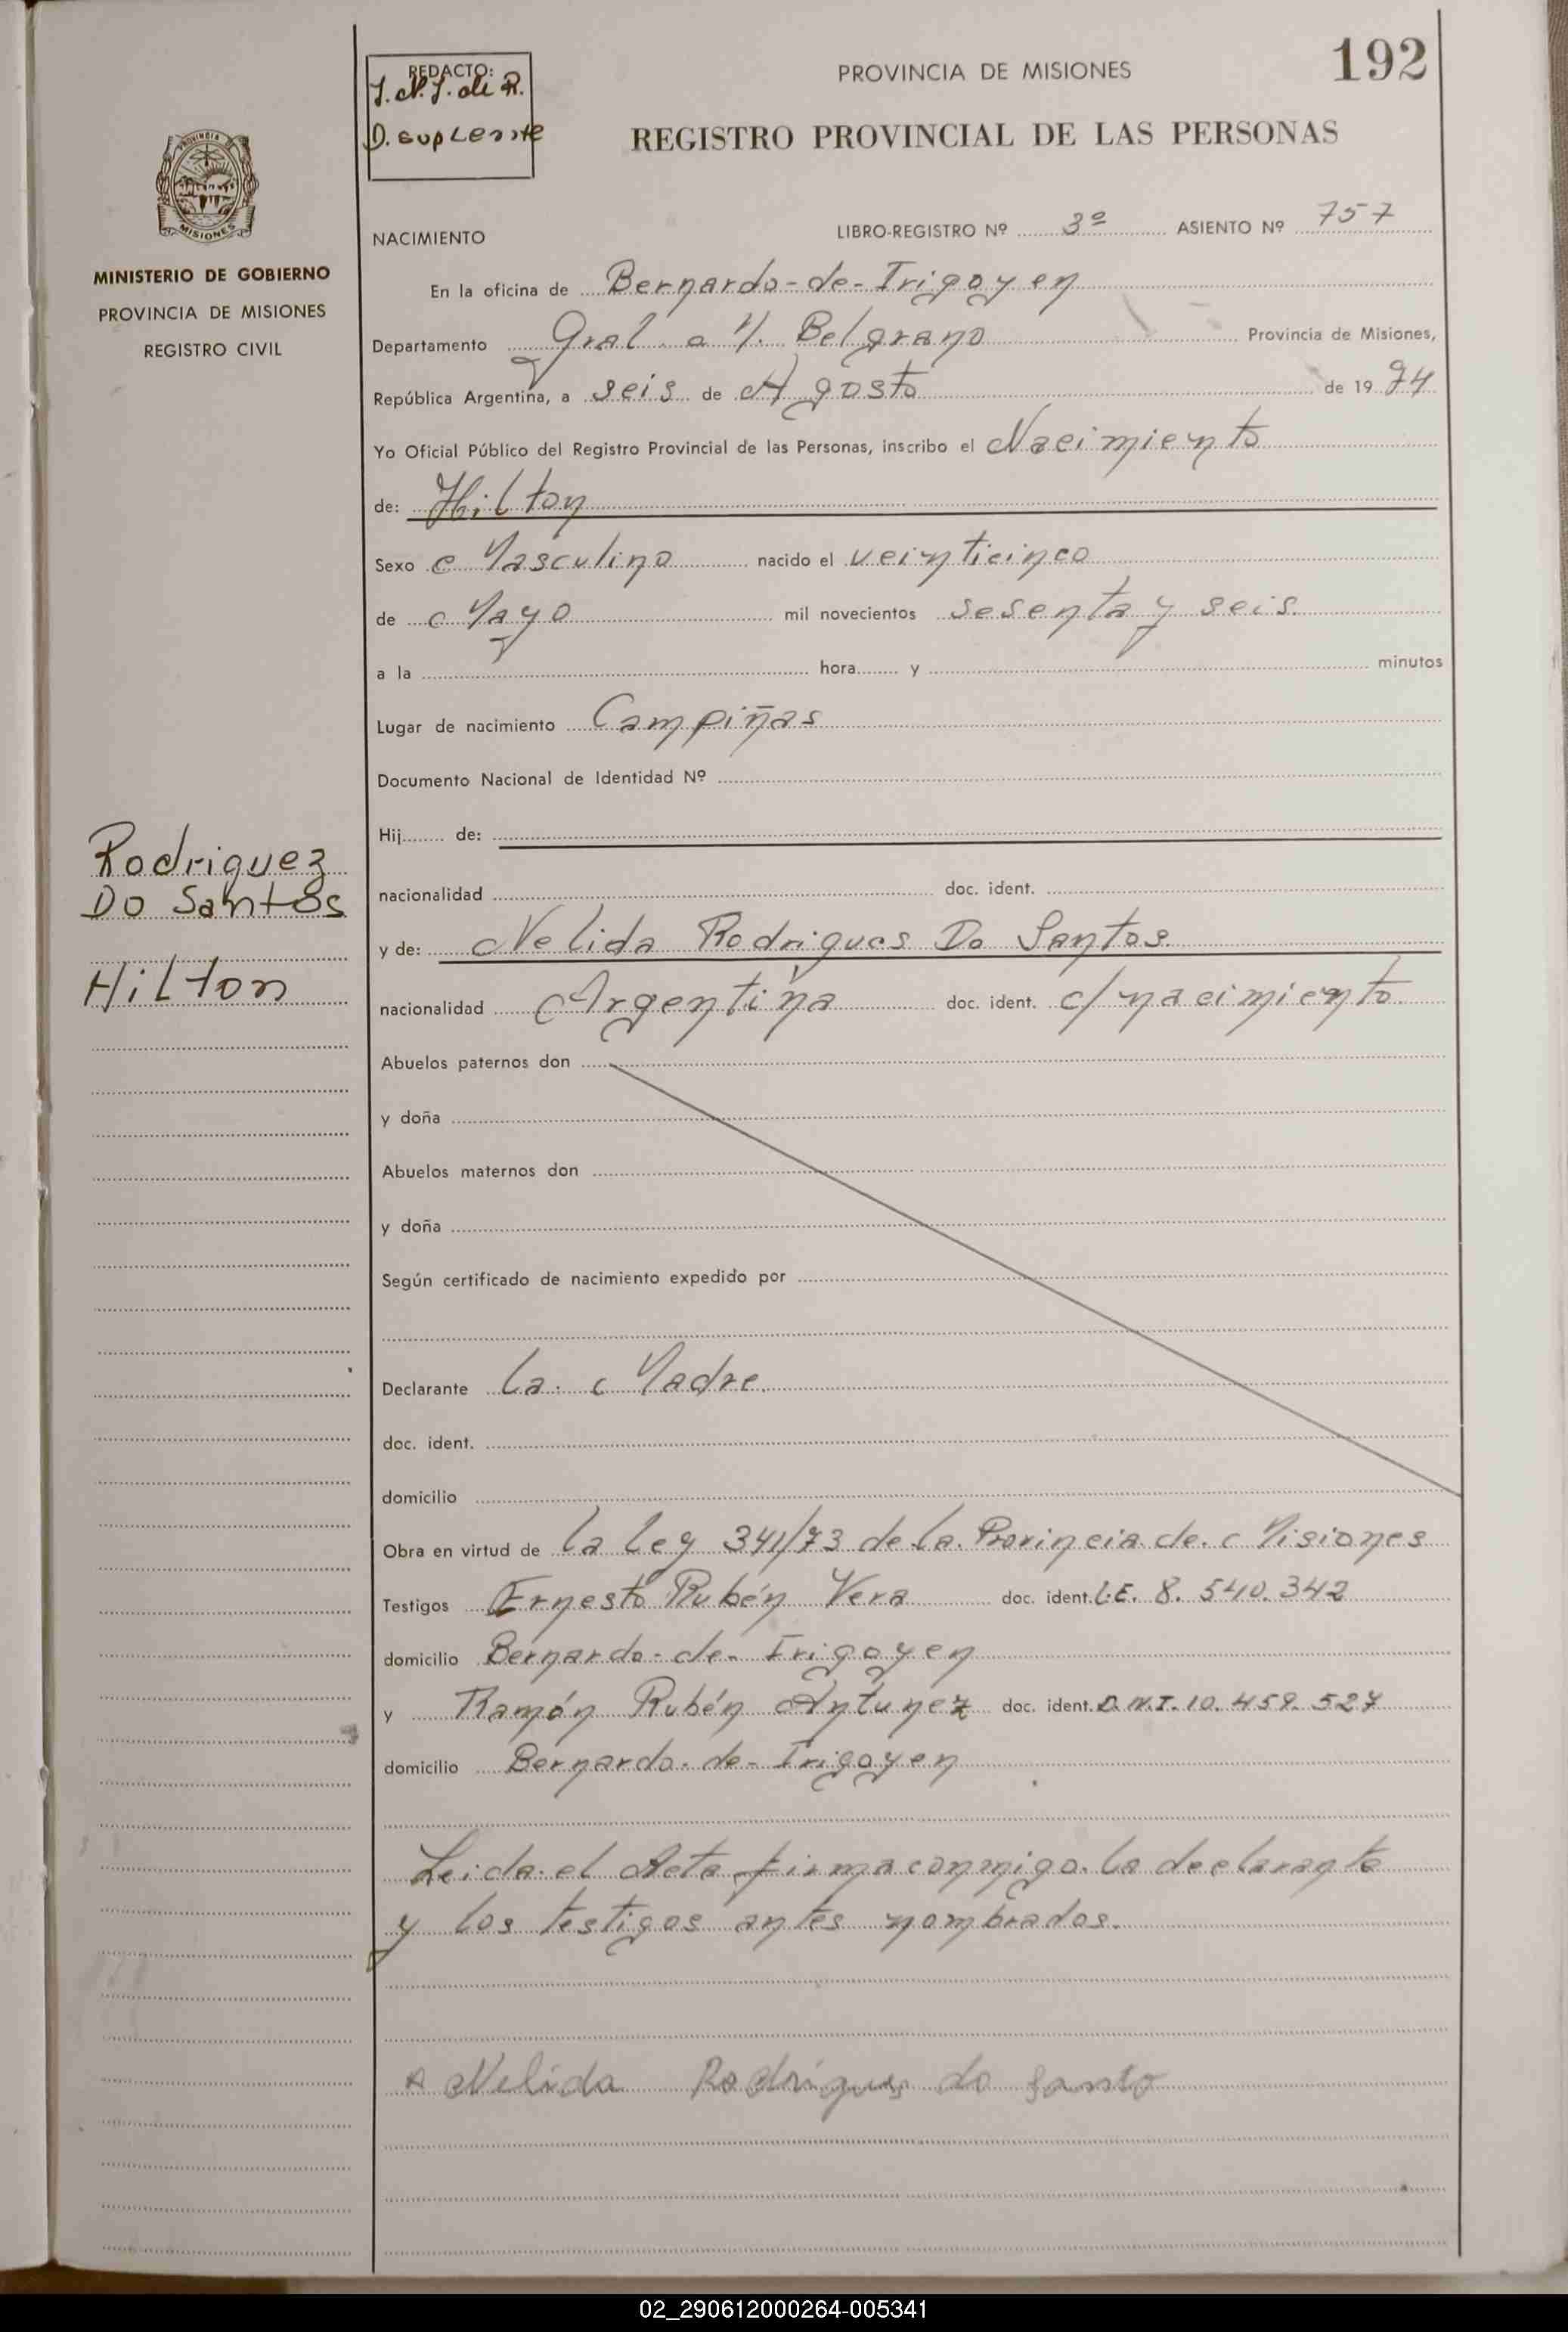 192
PROVINCIA DE MISIONES
REGISTRO PROVINCIAL DE LAS PERSONAS
REDACTO:
J. N. J. de R.
D. suplente
PROVINCIA
MISIONES
MINISTERIO DE GOBIERNO
PROVINCIA DE MISIONES
REGISTRO CIVIL
NACIMIENTO LIBRO-REGISTRO Nº 3º ASIENTO Nº 757
En la oficina de Bernardo-de-Irigoyen
Departamento Gral. M. Belgrano Provincia de Misiones,
República Argentina, a seis de Agosto de 19 74
Yo Oficial Público del Registro Provincial de las Personas, inscribo el Nacimiento
de: Hilton
Sexo Masculino nacido el veinticinco
de Mayo mil novecientos sesenta y seis
a la hora y minutos
Lugar de nacimiento Campiñas
Documento Nacional de Identidad Nº
Hij de:
Rodriguez
Do Santos
Hilton
nacionalidad doc. ident.
y de: Nelida Rodrigues Do Santos
nacionalidad Argentina doc. ident. c/ nacimiento
Abuelos paternos don
y doña
Abuelos maternos don
y doña
Según certificado de nacimiento expedido por
Declarante la Madre
doc. ident.
domicilio
Obra en virtud de la Ley 341/73 de la Provincia de Misiones
Testigos Ernesto Rubén Vera doc. ident. L.E. 8.540.342
domicilio Bernardo-de-Irigoyen
y Ramón Rubén Antunez doc. ident. D.N.I. 10.459.527
domicilio Bernardo-de-Irigoyen
Leida el Acta firma conmigo la declarante
y los testigos antes nombrados.
Nelida Rodrigues do Santo
02_290612000264-005341